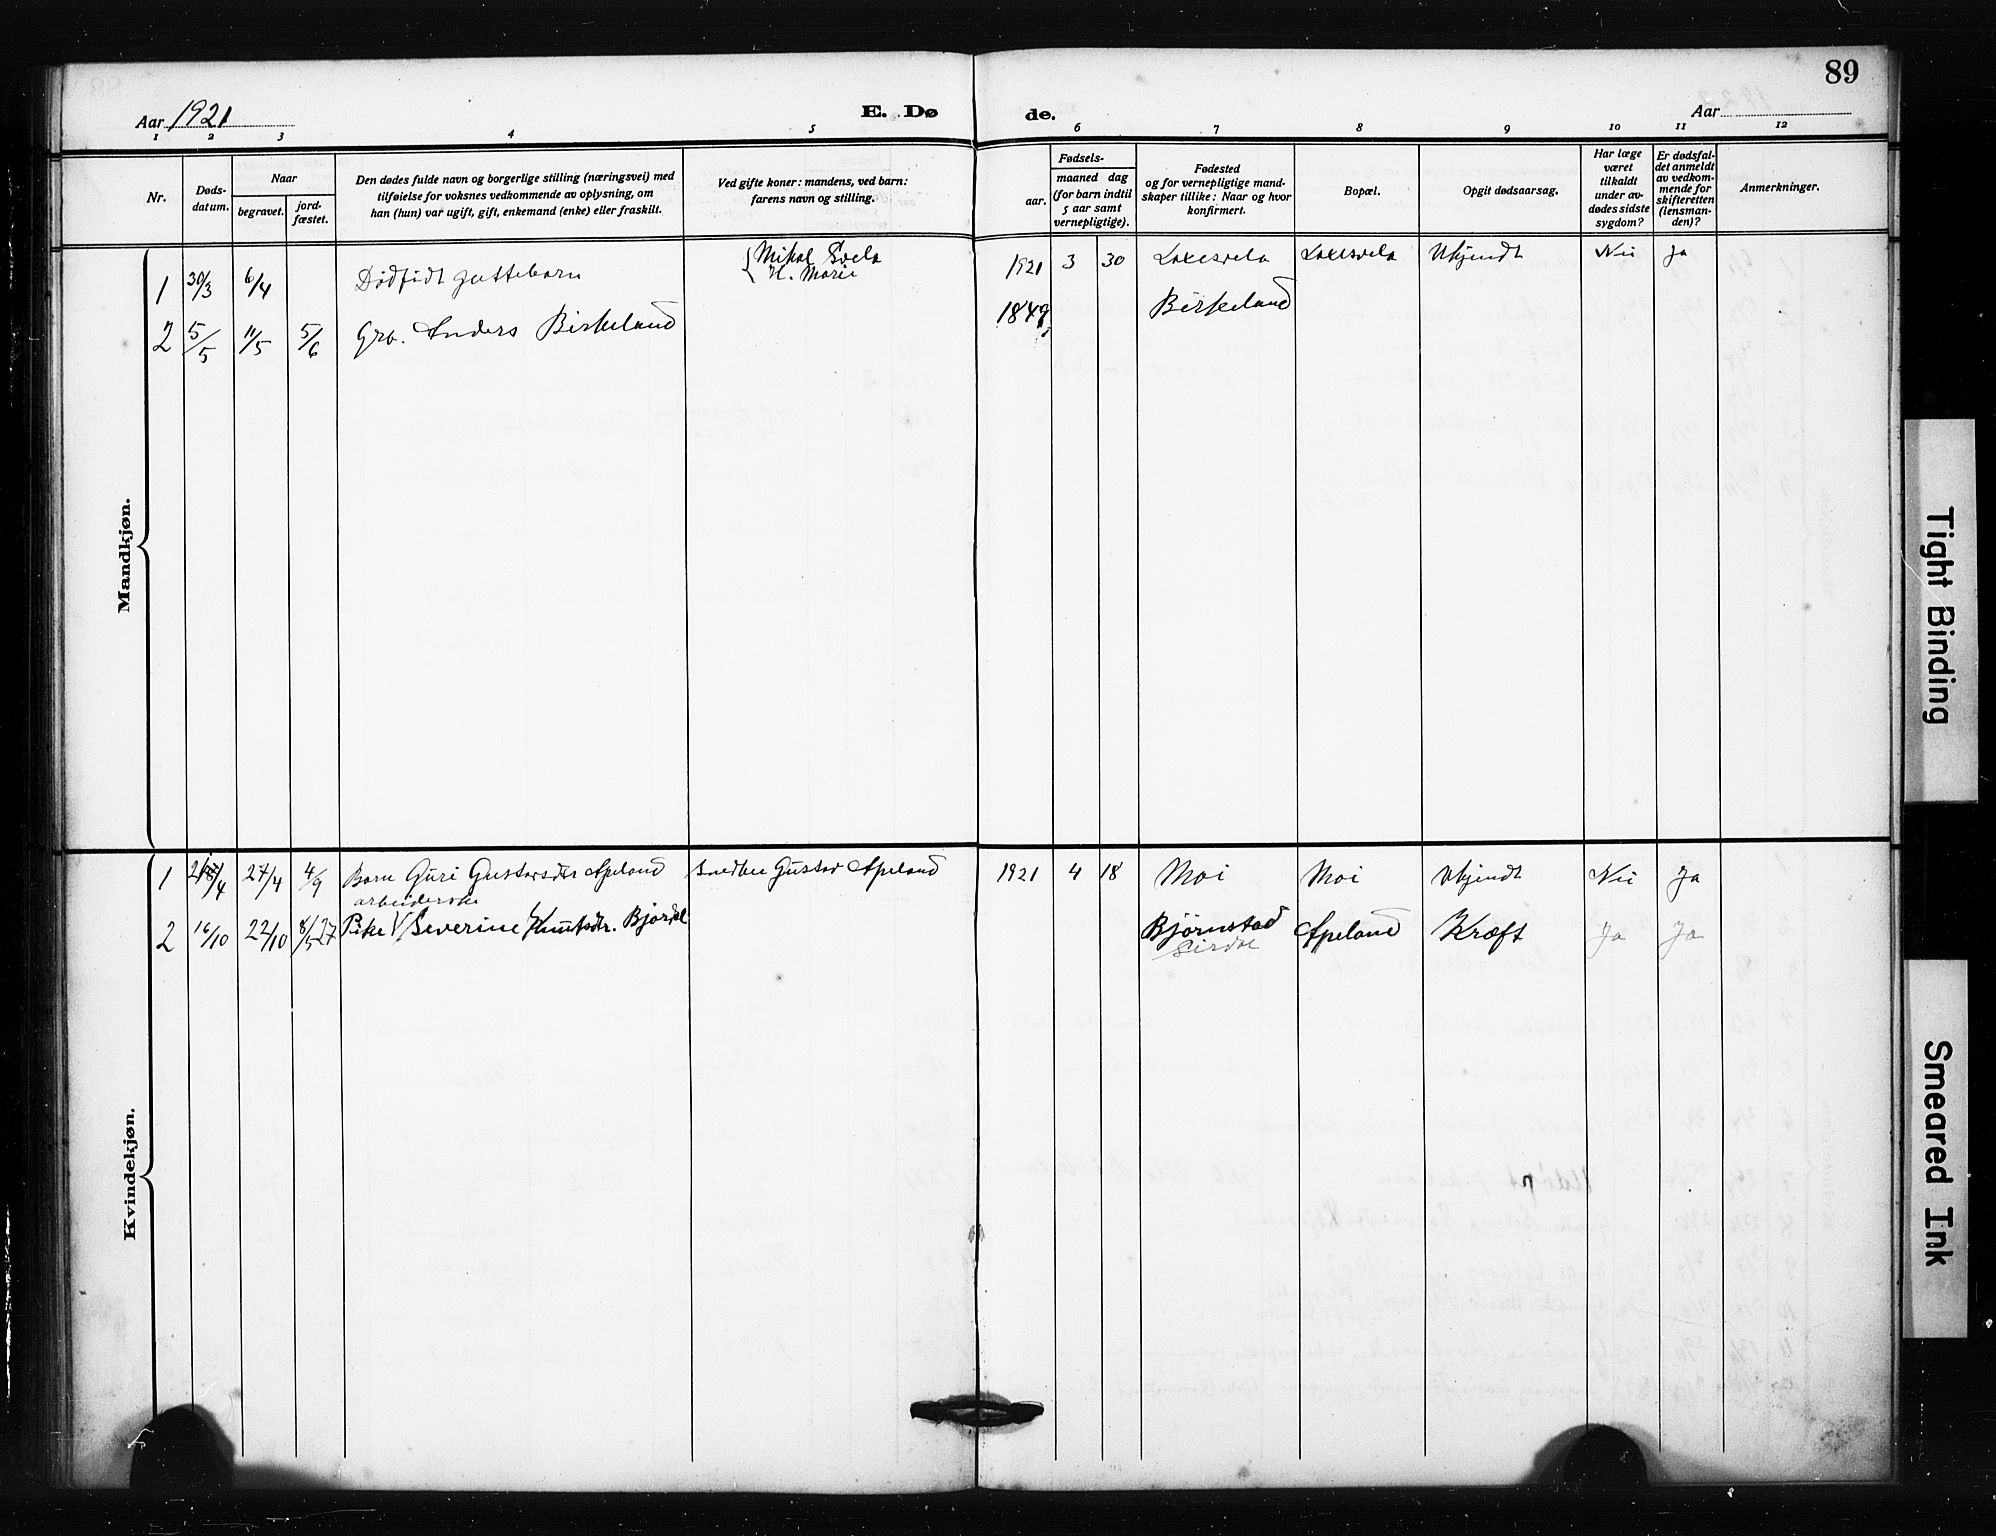 89
Aar 1921 E. Dø de. Aar
1 2 3 4 5 6 7 8 9 10 11 12
Nr.
Døds-
datum.
Naar
begravet.
jord-
fæstet.
Den dødes fulde navn og borgerlige stilling (næringsvei) med
tilføielse for voksnes vedkommende av oplysning, om
han (hun) var ugift, gift, enkemand (enke) eller fraskilt.
Ved gifte koner: mandens, ved barn:
farens navn og stilling.
Fødsels-
aar.
maaned dag
(for barn indtil
5 aar samt
vernepligtige).
Fødested
og for vernepligtige mand-
skaper tillike: Naar og hvor
konfirmert.
Bopæl.
Opgit dødsaarsag.
Har læge
været
tilkaldt
under av-
dødes sidste
sygdom?
Er dødsfal-
det anmeldt
av vedkom-
mende for
skifteretten
(lensman-
den)?
Anmerkninger.
Mandkjøn.
1 30/3 6/4 Dødfødt guttebarn Mikal Svela
H. Marie
1921 3 30 Laxesvela Laxesvela Ukjendt Nei Ja
2 5/5 11/5 5/6 Grb. Anders Birkeland 1849 Birkeland
Kvindekjøn.
1 /4 27/4 4/9 Barn Guri Gustavsdtr Apeland Snedker Gustav Apeland 1921 4 18 Moi Moi Ukjendt Nei Ja
arbeiderske
2 16/10 22/10 8/5 27 Pike Severine Knutsdtr. Bjordal Bjørnstad Apeland Kræft Ja Ja
Sirdal
Tight Binding
Smeared Ink